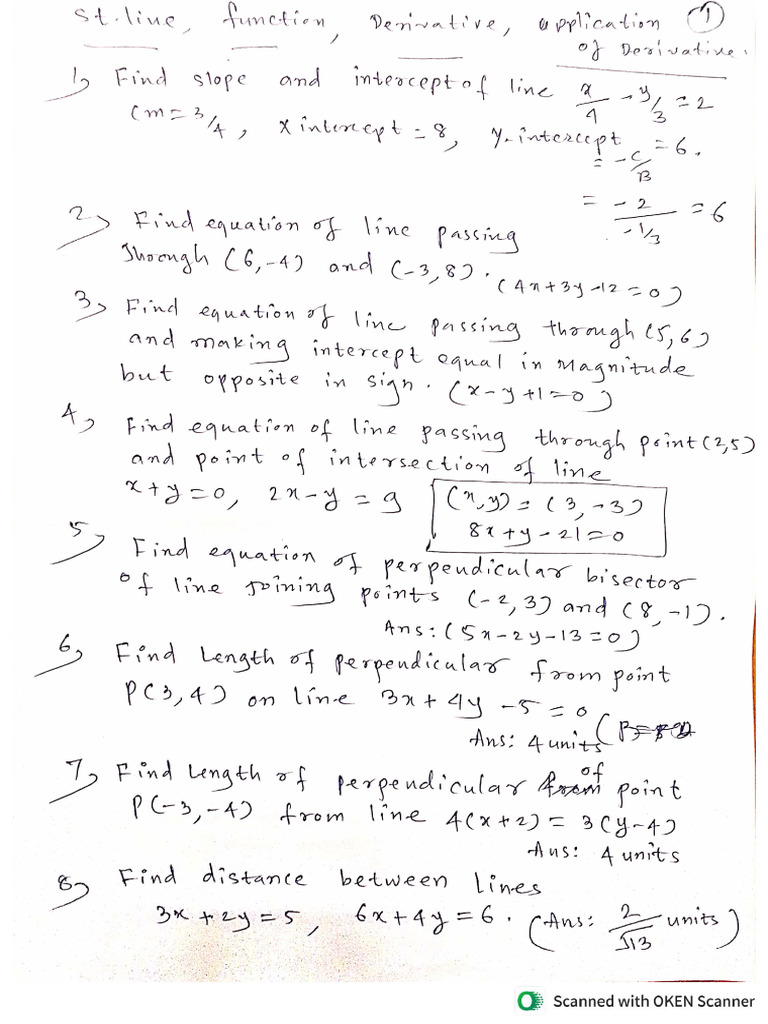 St. line, function, Derivative, application ①
of Derivative.
1) Find slope and intercept of line x/4 - y/3 = 2
(m = 3/4, x intercept = 8, y-intercept = 6.
= -C/B
= -2/(-1/3) = 6
2) Find equation of line passing
through (6,-4) and (-3,8). (4x+3y-12=0)
3) Find equation of line passing through (5,6)
and making intercept equal in magnitude
but opposite in sign. (x-y+1=0)
4) Find equation of line passing through point (2,5)
and point of intersection of line
x+y=0, 2x-y=9 (x,y) = (3,-3)
8x+y-21=0
5) Find equation of perpendicular bisector
of line joining points (-2,3) and (8,-1).
Ans: (5x-2y-13=0)
6) Find Length of perpendicular from point
P(3,4) on line 3x+4y-5=0
Ans: 4 units
7) Find Length of perpendicular of point
P(-3,-4) from line 4(x+2) = 3(y-4)
Ans: 4 units
8) Find distance between lines
3x+2y=5, 6x+4y=6. (Ans: 2/√13 units)
Scanned with OKEN Scanner